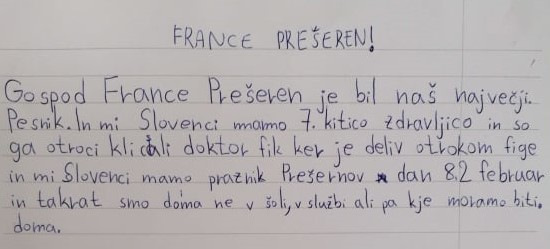 FRANCE PREŠEREN!
Gospod France Prešeren je bil naš največji.
Pesnik. In mi Slovenci mamo 7. kitico zdravljico in so
ga otroci klicali doktor fik ker je deliv otrokom fige
in mi Slovenci mamo praznik Prešernov dan 8.2 februar
in takrat smo doma ne v šoli, v službi ali pa kje moramo biti.
doma.